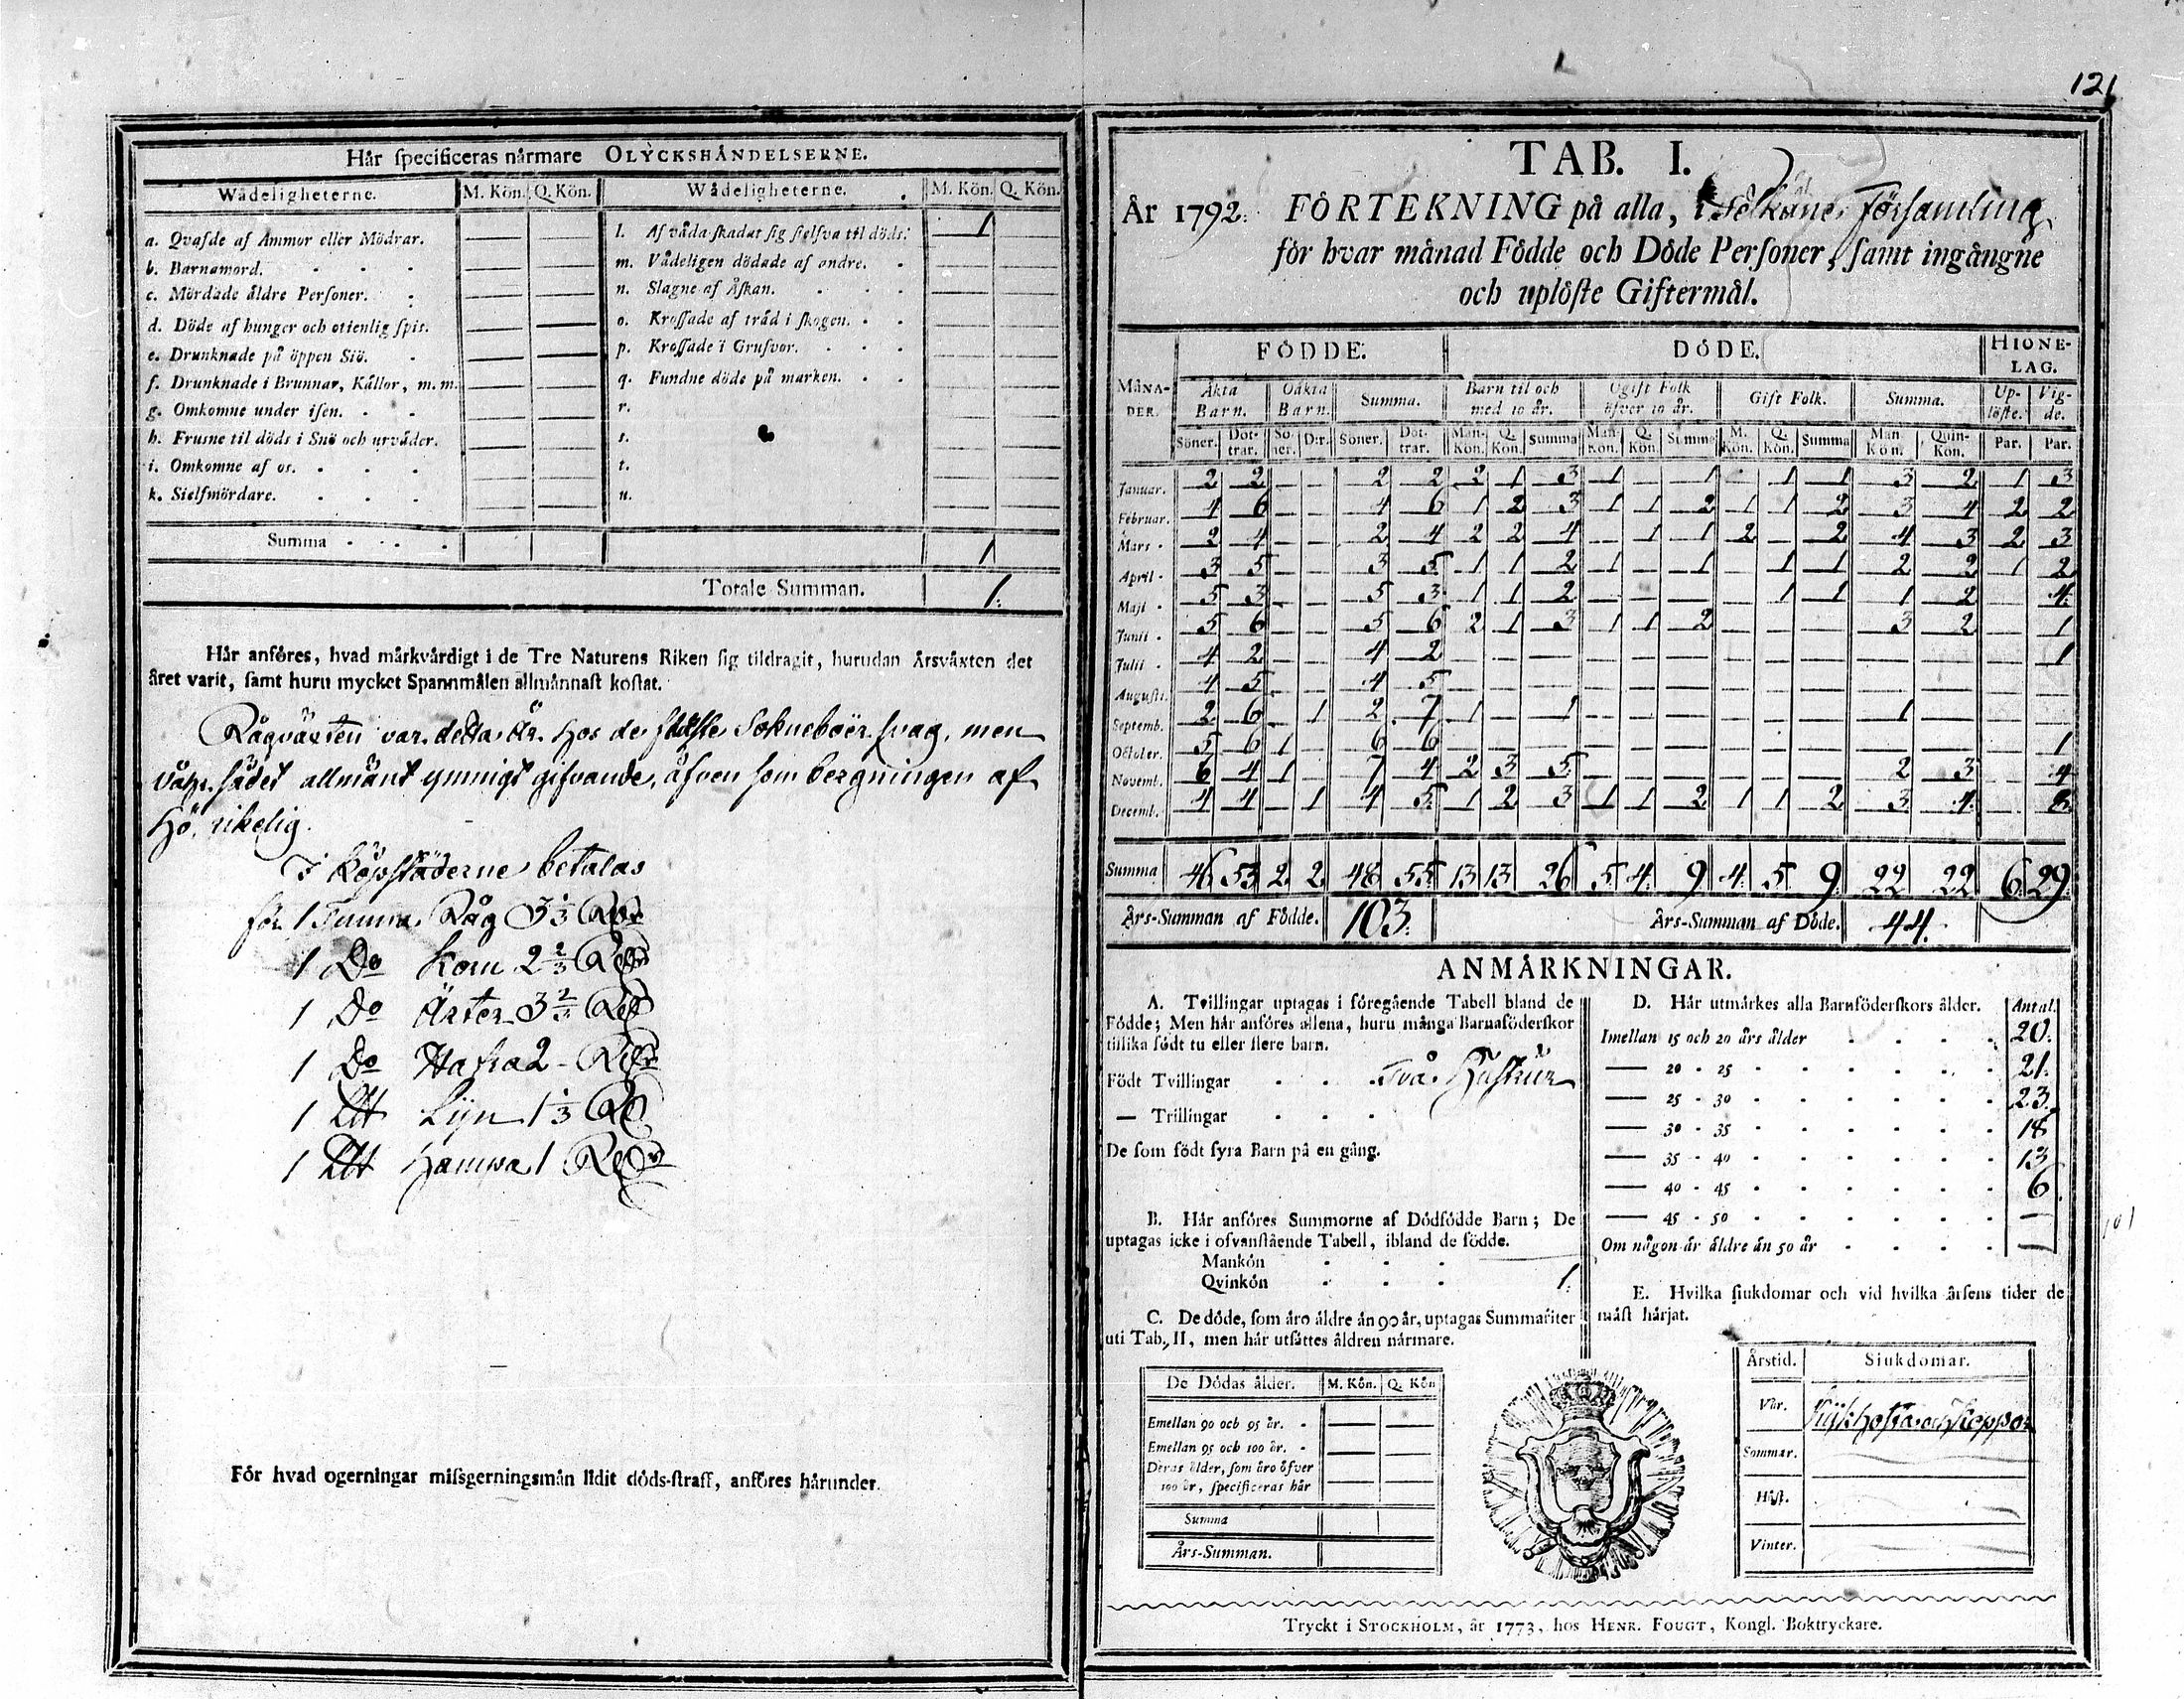 121
Hår specificeras nårmare OLYCKSHÅNDELSERNE.
Wådeligheterne. M. Kön. Q. Kön. Wådeligheterne. M. Kön. Q. Kön.
a. Qvafde af Ammor eller Mödrar. — — l. Af våda skadat sig sielfva til döds. 1 —
b. Barnamord. — — m. Vådeligen dödade af andre. — —
c. Mördade äldre Personer. — — n. Slagne af Åskan. — —
d. Döde af hunger och otienlig spis. — — o. Krossade af träd i skogen. — —
e. Drunknade på öppen Siö. — — p. Krossade i Grufvor. — —
f. Drunknade i Brunnar, Källor, m. m. — — q. Fundne döde på marken. — —
g. Omkomne under isen. — — r. — —
h. Frusne til döds i Snö och urväder. — — s. — —
i. Omkomne af os. — — t. — —
k. Sielfmördare. — — u. — —
Summa 1
Totale Summan. 1.
Hår anföres, hvad mårkvårdigt i de Tre Naturens Riken sig tildragit, hurudan Årsväxten det
året varit, samt huru mycket Spannmålen allmånnast kostat.
Rågväxten var detta År hos de fläste Sokneboer svag, men
vår sädet allmänt ymnigt gifvande, äfven som bergningen af
Hö, rikelig.
I Köpstäderne betalas
för 1 Tunna Råg 3 1/3 Rdr
1 Do Korn 2 2/3 Rdr
1 Do Ärter 3 2/3 Rdr
1 Do Hafra 2 - Rdr
1 LH Lijn 1 1/3 Rdr
1 LH Hampa 1 Rdr
För hvad ogerningar missgerningsmån lidit döds-straff, anföres hårunder.
TAB. I.
År 1792. FÖRTEKNING på alla, i Församling
för hvar månad Födde och Döde Personer, samt ingångne
och uplöste Giftermål.
MÅNADER. FÖDDE. DÖDE. HIONELAG.
Äkta Barn. Oäkta Barn. Summa. Barn til och med 10 år. Ogift Folk öfver 10 år. Gift Folk. Summa. Uplöste. Vigde.
Söner. Döttrar. Söner. D:r. Söner. Döttrar. Man-Kön. Q. Kön. Summa Man-Kön. Q. Kön. Summa M. Kön. Q. Kön. Summa Man Kön. Quin-Kon. Par. Par.
Januar. 2 2 — — 2 2 2 1 3 1 — 1 — 1 1 3 2 1 3
Februar. 4 6 — — 4 6 1 2 3 1 1 2 1 1 2 3 4 2 2
Mars 2 4 — — 2 4 2 2 4 — 1 1 2 — 2 4 3 2 3
April 3 5 — — 3 5 1 1 2 1 — 1 — 1 1 2 2 1 2
Maji 5 3 — — 5 3 1 1 2 — — — — 1 1 1 2 — 4
Junii 5 6 — — 5 6 2 1 3 1 1 2 — — — 3 2 — 1
Julii 4 2 — — 4 2 — — — — — — — — — — — — 1
Augusti. 4 5 — — 4 5 — — — — — — — — — — — — —
Septemb. 2 6 — 1 2 7 1 — 1 — — — — — — 1 — — —
October. 5 6 1 — 6 6 — — — — — — — — — — — — 1
Novemb. 6 4 1 — 7 4 2 3 5 — — — — — — 2 3 — 4
Decemb. 4 4 — 1 4 5 1 2 3 1 1 2 1 1 2 3 4 — 8
Summa 46 53 2 2 48 55 13 13 26 5 4 9 4 5 9 22 22 6 29
Års-Summan af Födde. 103. Års-Summan af Döde. 44.
ANMÅRKNINGAR.
A. Tvillingar uptagas i föregående Tabell bland de
Födde; Men hår anföres allena, huru många Barnaföderskor
tillika födt tu eller flere barn.
Födt Tvillingar Två Hustrur
— Trillingar
De som födt fyra Barn på en gång.
B. Hår anföres Summorne af Dödfödde Barn; De
uptagas icke i ofvanstående Tabell, ibland de födde.
Mankön —
Qvinkön 1.
C. De döde, som åro åldre ån 90 år, uptagas Summariter
uti Tab. II, men hår utsåttes åldren nårmare.
De Dödas ålder. M. Kön. Q. Kön
Emellan 90 och 95 år. — —
Emellan 95 och 100 år. — —
Deras ålder, som åro öfver — —
100 år, specificeras hår
Summa
Års-Summan.
D. Hår utmårkes alla Barnföderskors ålder. Antal.
Imellan 15 och 20 års ålder 20.
— 20 - 25 21.
— 25 - 30 23.
— 30 - 35 18
— 35 - 40 13
— 40 - 45 6
— 45 - 50 —
Om någon är åldre ån 50 år —
101
E. Hvilka siukdomar och vid hvilka årsens tider de
måst hårjat.
Årstid. Siukdomar.
Vår. Kikhosta och Koppor
Sommar.
Höst.
Vinter.
Tryckt i STOCKHOLM, år 1773, hos HENR. FOUGT, Kongl. Boktryckare.